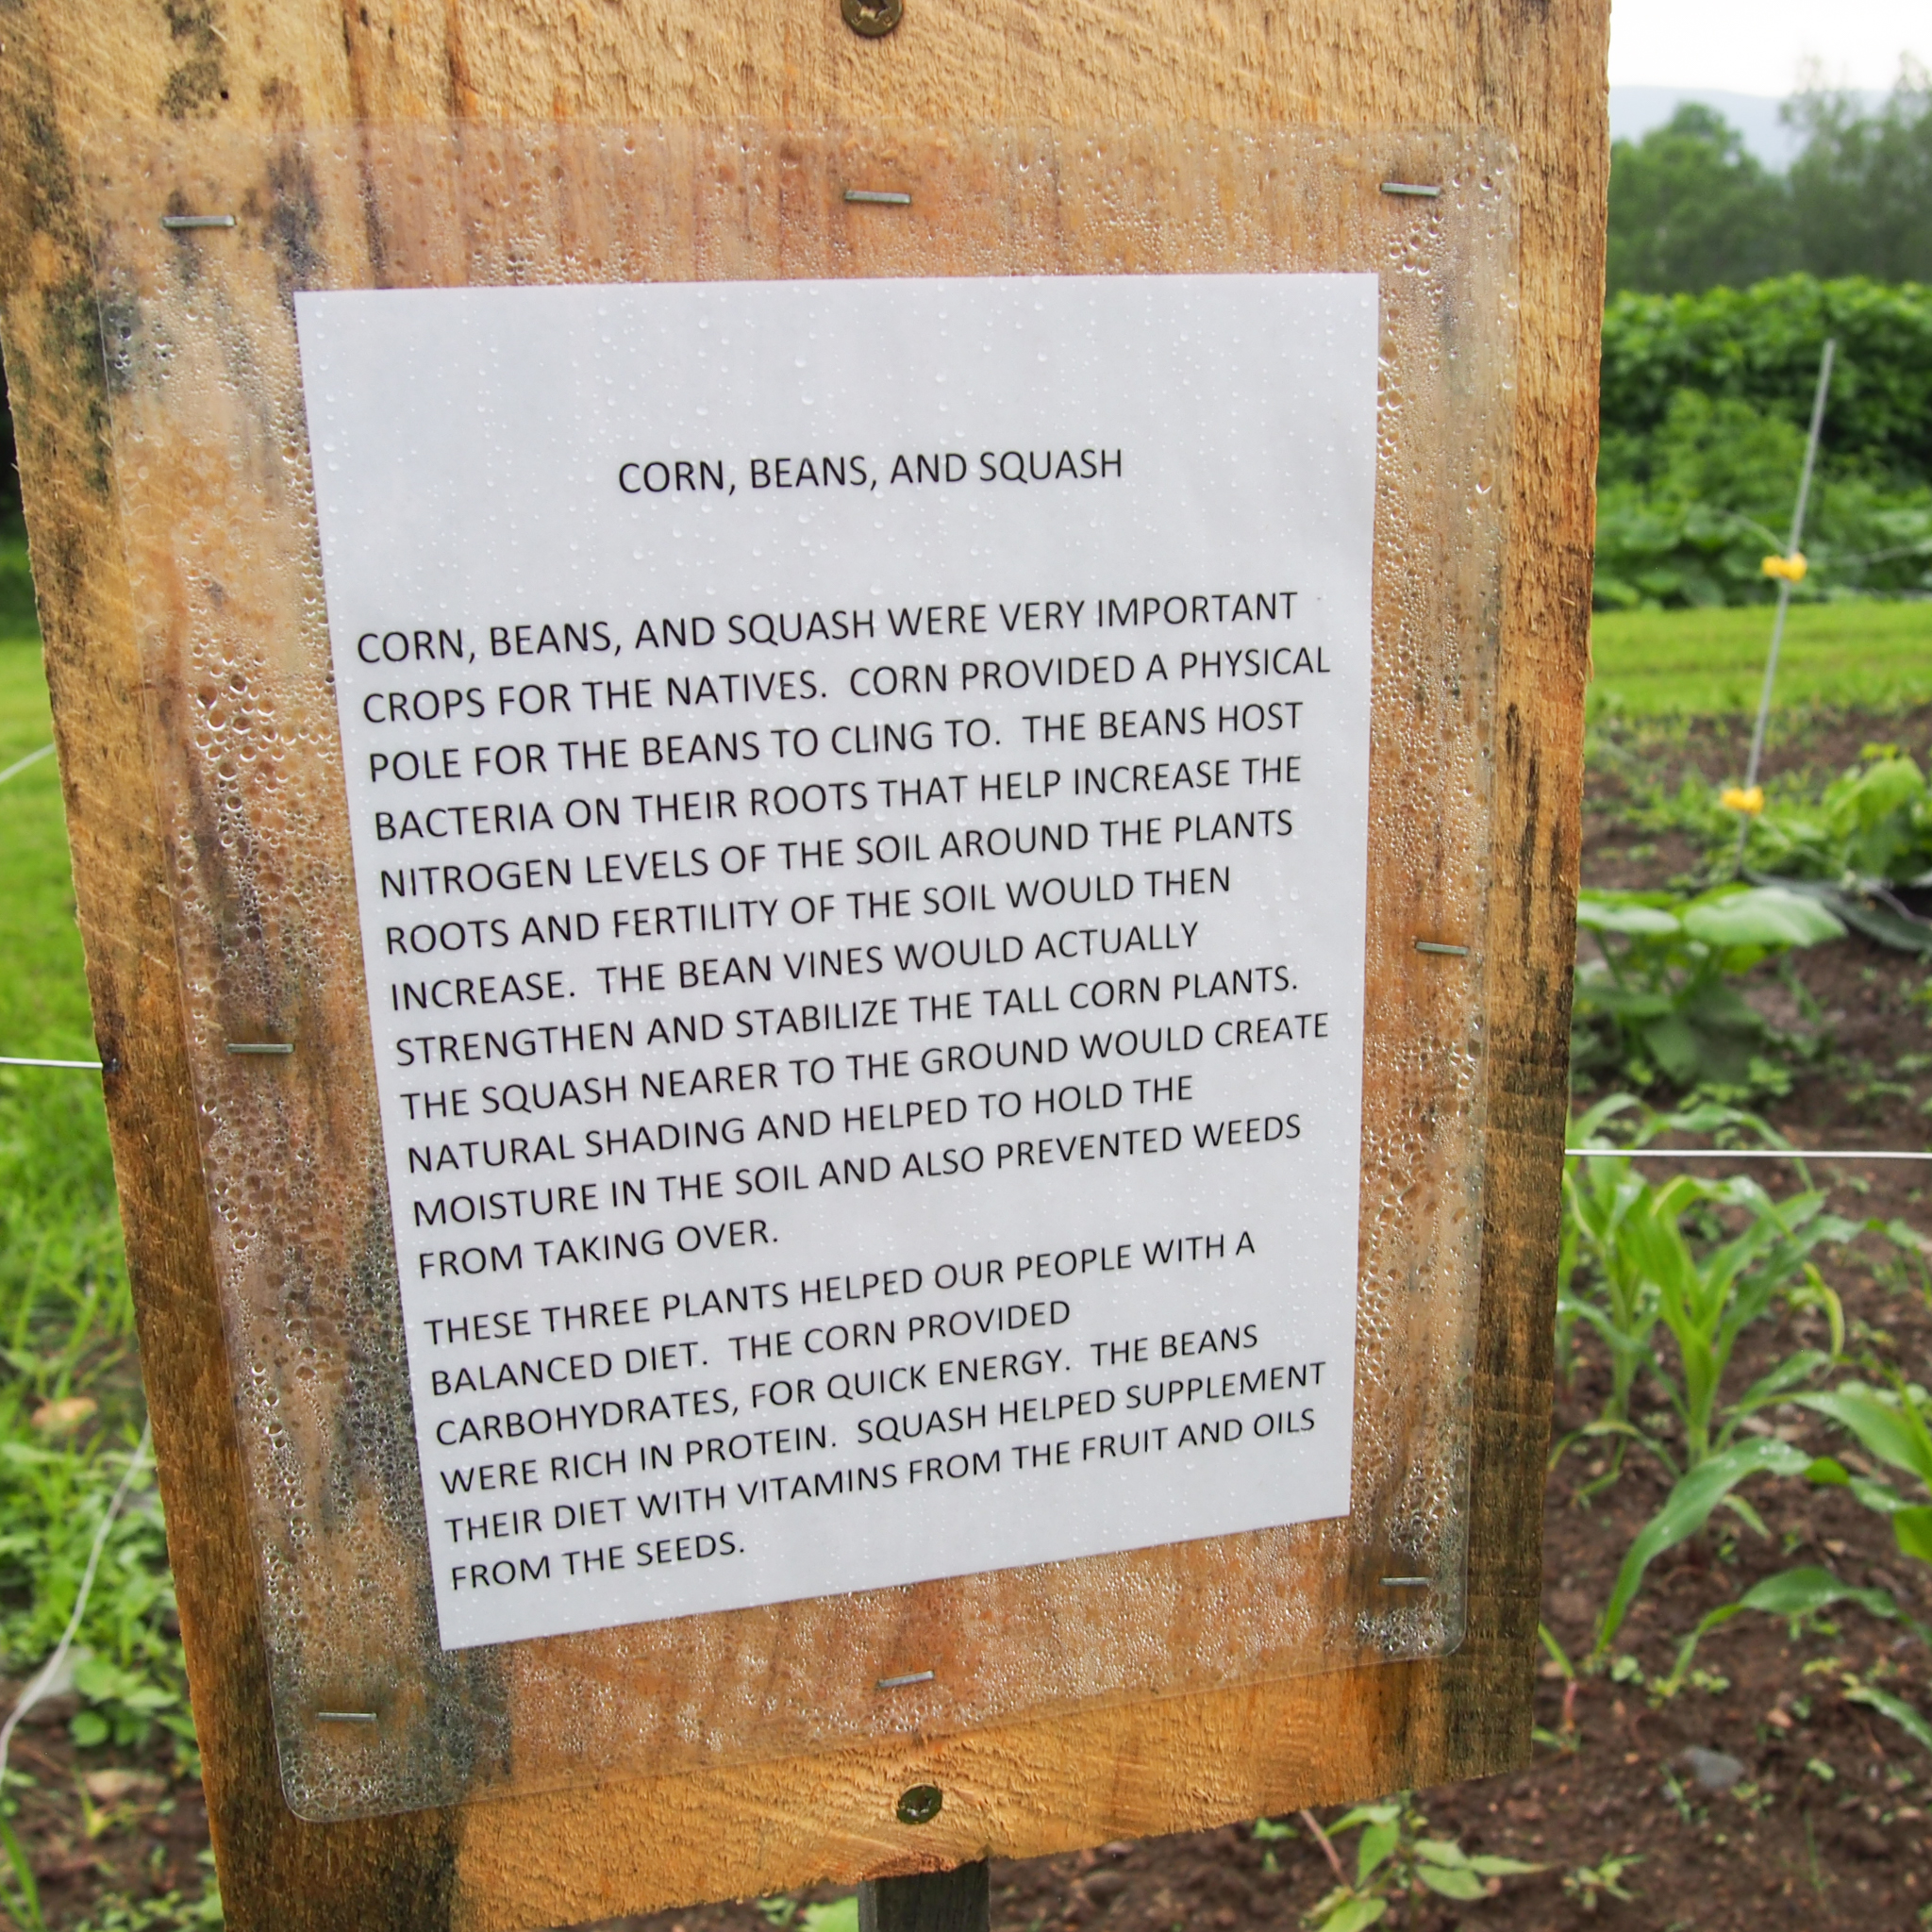 CORN, BEANS, AND SQUASH
CORN, BEANS, AND SQUASH WERE VERY IMPORTANT
CROPS FOR THE NATIVES. CORN PROVIDED A PHYSICAL
POLE FOR THE BEANS TO CLING TO. THE BEANS HOST
BACTERIA ON THEIR ROOTS THAT HELP INCREASE THE
NITROGEN LEVELS OF THE SOIL AROUND THE PLANTS
ROOTS AND FERTILITY OF THE SOIL WOULD THEN
INCREASE. THE BEAN VINES WOULD ACTUALLY
STRENGTHEN AND STABILIZE THE TALL CORN PLANTS.
THE SQUASH NEARER TO THE GROUND WOULD CREATE
NATURAL SHADING AND HELPED TO HOLD THE
MOISTURE IN THE SOIL AND ALSO PREVENTED WEEDS
FROM TAKING OVER.
THESE THREE PLANTS HELPED OUR PEOPLE WITH A
BALANCED DIET. THE CORN PROVIDED
CARBOHYDRATES, FOR QUICK ENERGY. THE BEANS
WERE RICH IN PROTEIN. SQUASH HELPED SUPPLEMENT
THEIR DIET WITH VITAMINS FROM THE FRUIT AND OILS
FROM THE SEEDS.